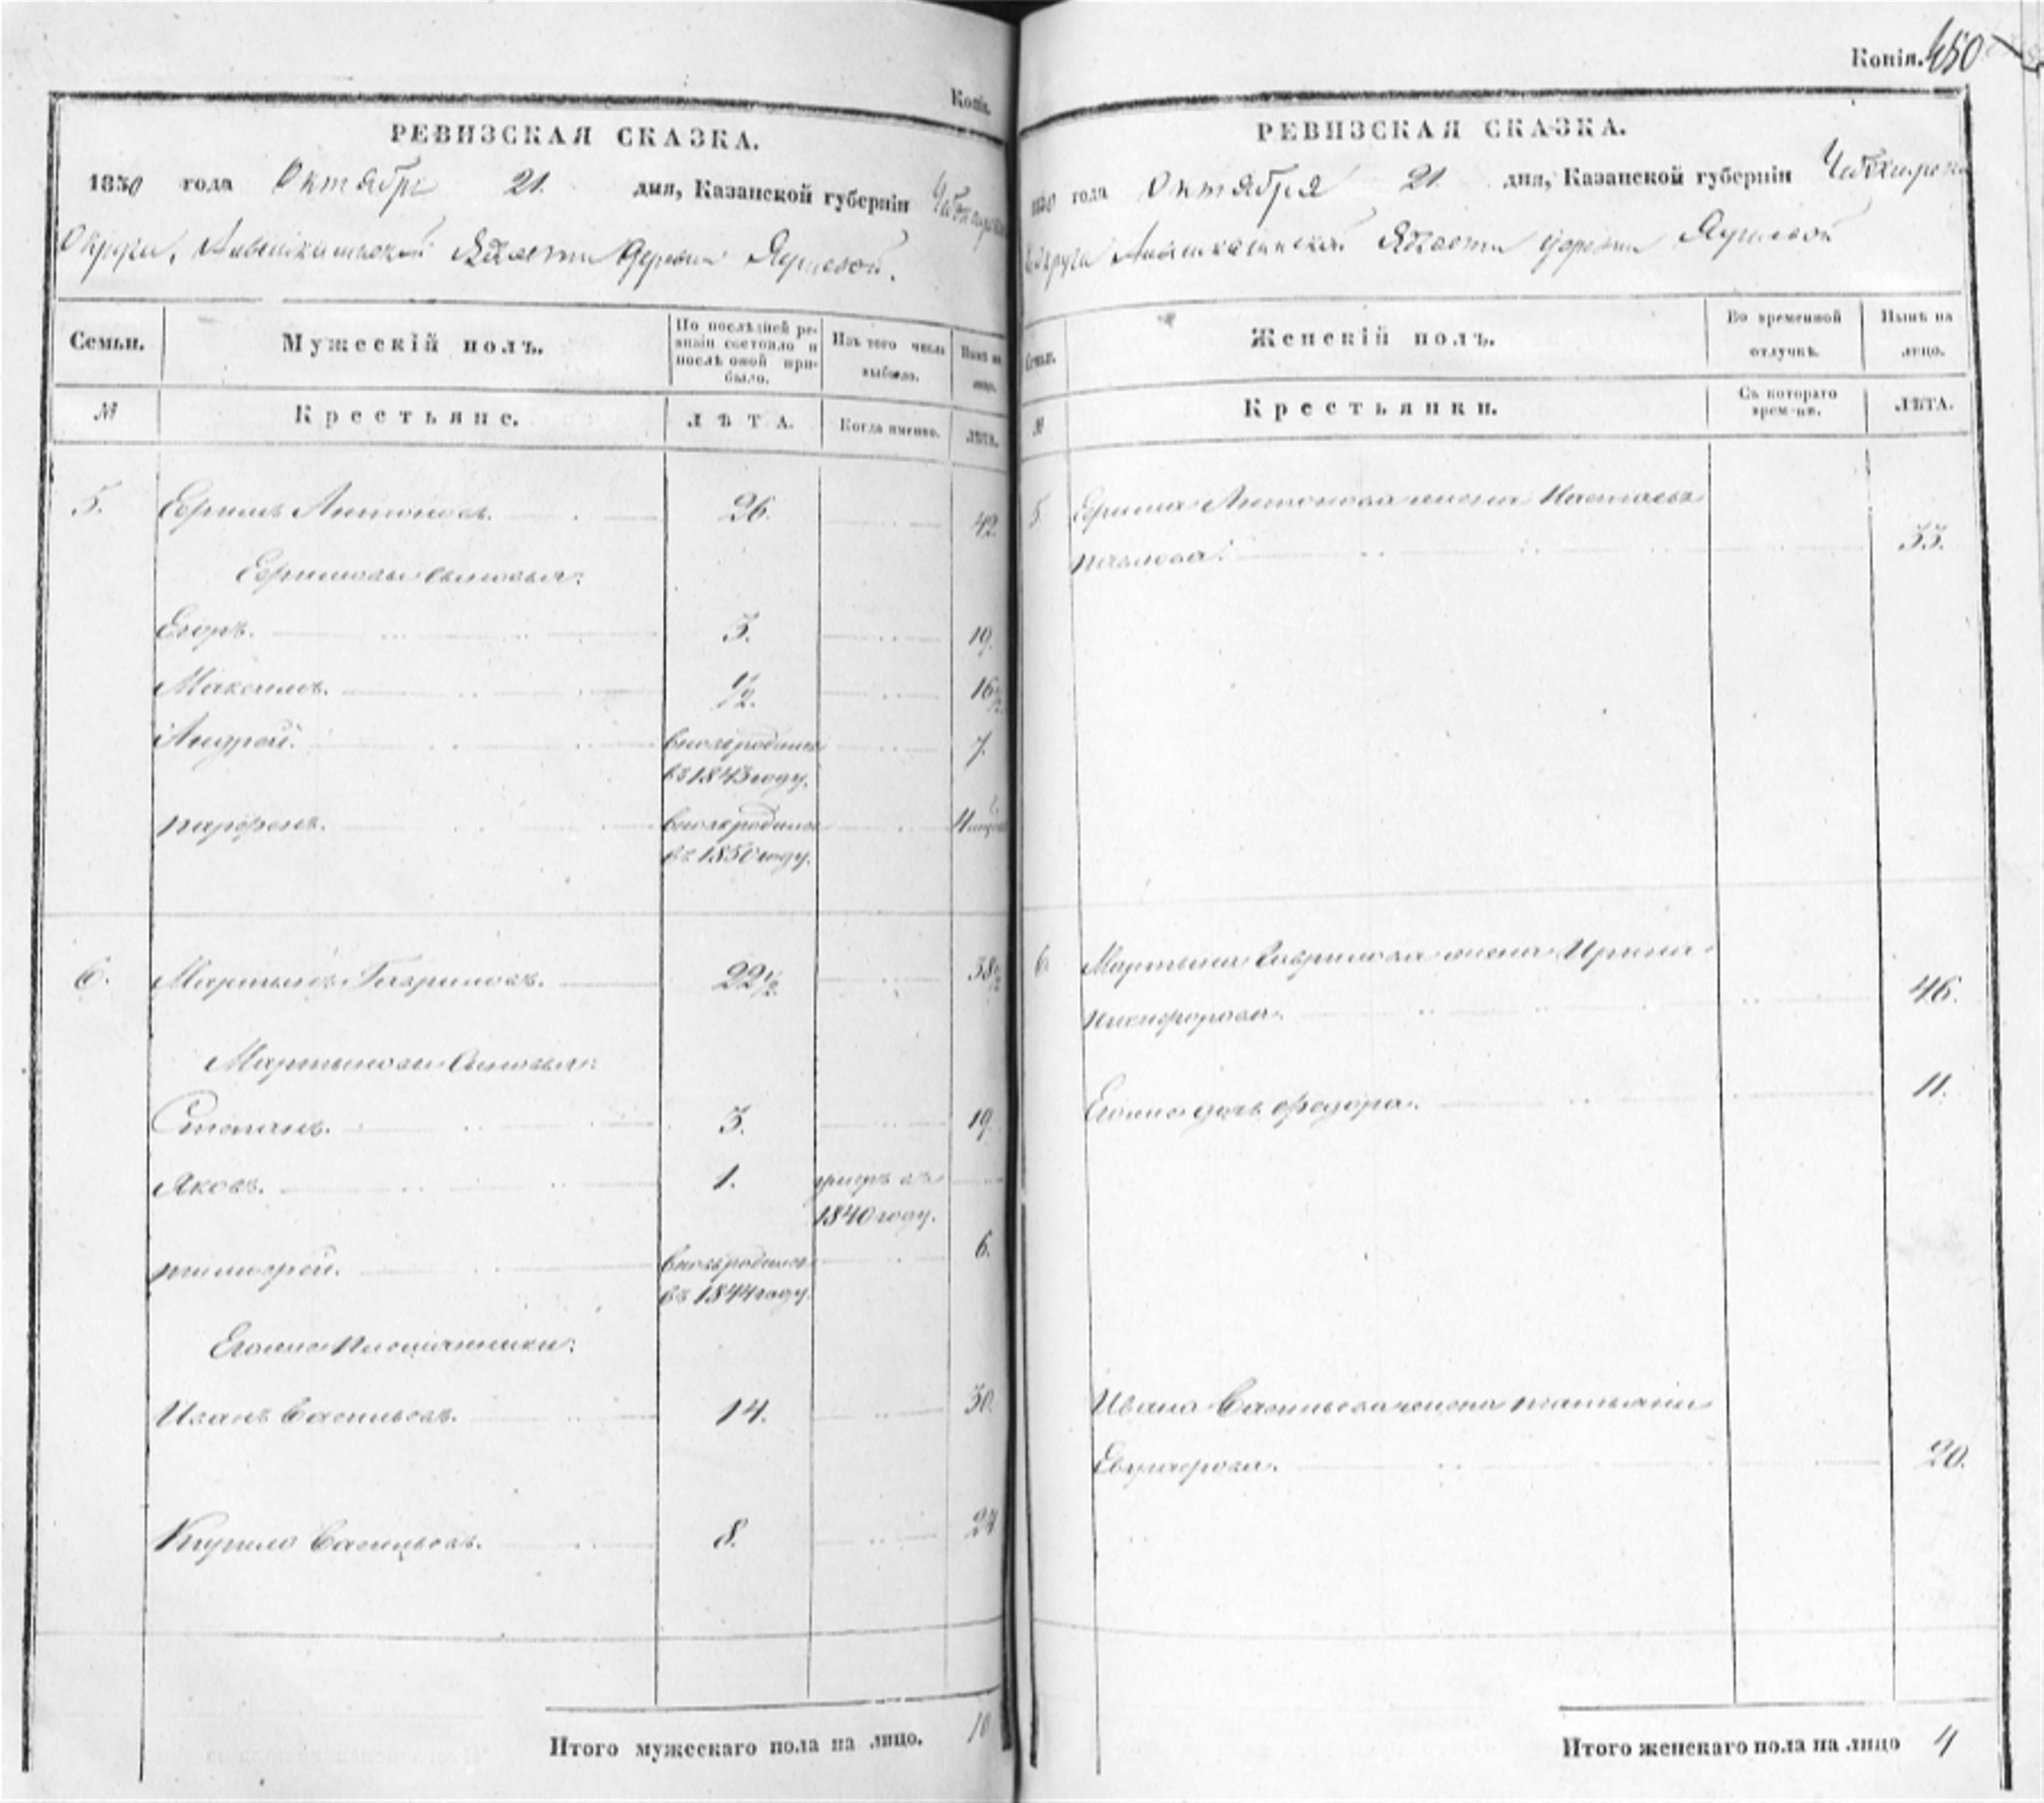 Копія.
РЕВИЗСКАЯ СКАЗКА.
1850 года Октября 21. дня, Казанской губерніи
Округи, деревни
Семьи. Мужескій полъ. По послѣдней ревизіи состояло и послѣ оной прибыло. Изъ того числа выбыло. Нынѣ на лицо.
№ Крестьяне. ЛѢТА. Когда именно. ЛѢТА.
5. Ефимъ Антоновъ. 26. 42.
Ефимовы сыновья:
Егоръ. 3. 19.
Максимъ. 1/2. 16 1/2
Андрей. вновь родился 7.
въ 1843 году.
Парфенъ. вновь родился
въ 1850 году.
6. Мартынъ Гавриловъ. 22 1/2. 38 1/2
Мартыновы сыновья:
Степанъ. 3. 19.
Яковъ. 1. умеръ въ
1840 году.
Тимофей. вновь родился 6.
въ 1844 году.
Его же племянники:
Иванъ Васильевъ. 14. 30.
Кирило Васильевъ. 8. 24
Итого мужескаго пола на лицо. 10
Копія. 650
РЕВИЗСКАЯ СКАЗКА.
1850 года Октября 21. дня, Казанской губерніи
Округи деревни
Семьи. Женскій полъ. Во временной отлучкѣ. Нынѣ на лицо.
№ Крестьянки. Съ котораго времени. ЛѢТА.
5. Ефима Антонова жена Настасья
Павлова. 33.
6. Мартына Гаврилова жена Ирина
Никифорова. 46.
Его же дочь Федора. 11.
Ивана Васильева жена Татьяна
20.
Итого женскаго пола на лицо 4